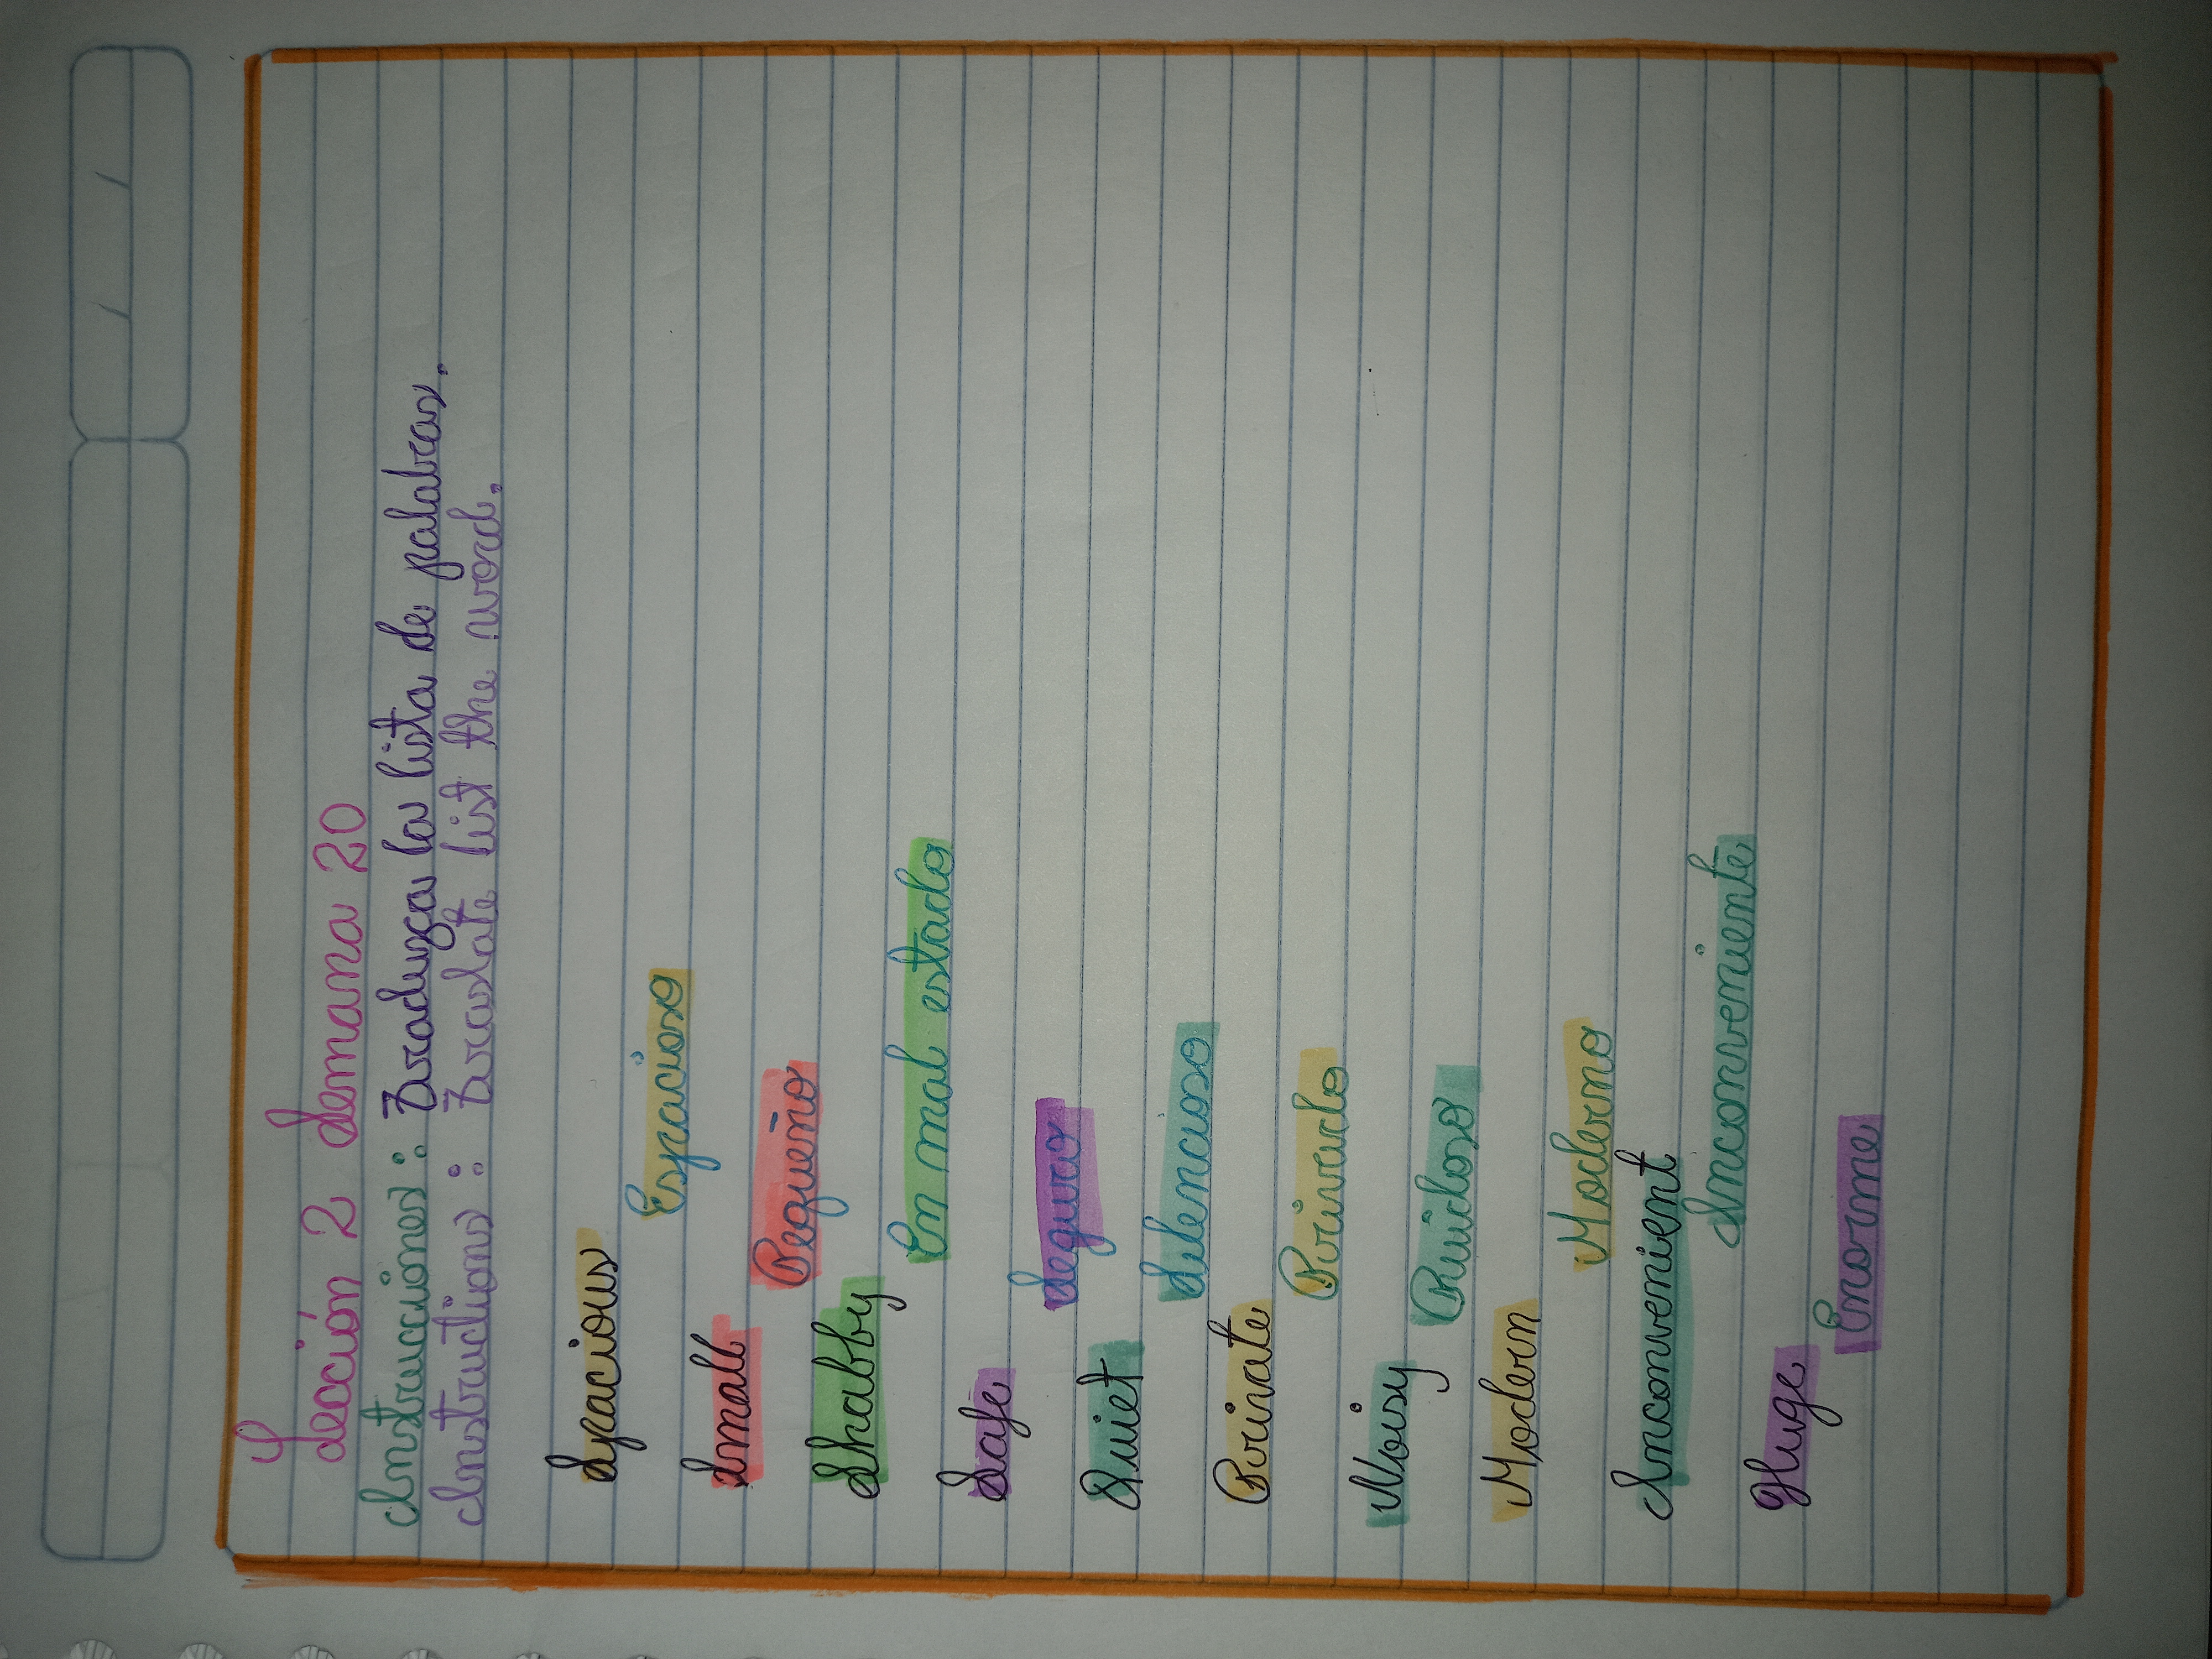 Sección 2 Semana 20
Instrucciones: Traduzca la lista de palabras.
Instructions: Traslate list the word.
Spacious
Espacioso
Small
Pequeño
Shabby
En mal estado
Safe
Seguro
Quiet
Silencioso
Private
Privado
Noisy
Ruidoso
Modern
Moderno
Inconvenient
Inconveniente
Huge
Enorme